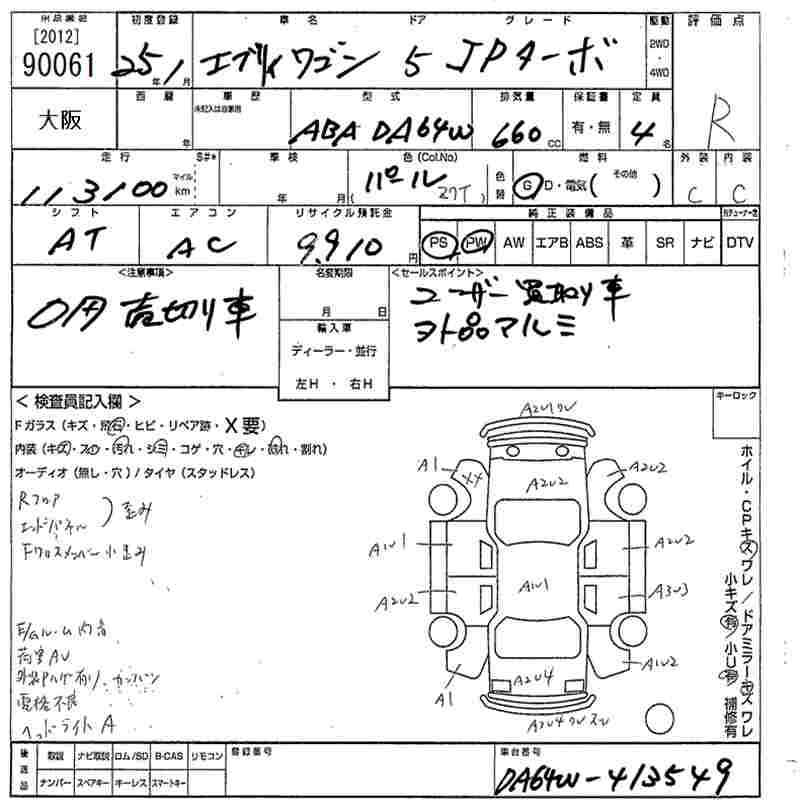 出品番号 初度登録 車名 ドア グレード 駆動 評価点
[2012]
90061 25年1月 エブリィワゴン 5 JPターボ 2WD・4WD R
大阪 西暦 年 車歴 未記入は自家用 型式 ABA DA64W 排気量 660cc 保証書 有・無 定員 4名
走行 113100 マイル km S#* 車検 年 月 色(Col.No) パール (27T) 色替 燃料 G D・電気( その他 ) 外装 C 内装 C
シフト AT エアコン AC リサイクル預託金 9,910円 純正装備品 PS PW AW エアB ABS 革 SR ナビ 地デジチューナー空 DTV
<注意事項> 名変期限 <セールスポイント>
売切り車 月 日 ユーザー買取り車
輸入車 アルミ
ディーラー・並行
左H ・ 右H
キーロック
< 検査員記入欄 >
Fガラス (キズ・飛石・ヒビ・リペア跡・X要)
内装 (キズ・スレ・汚れ・シミ・コゲ・穴・キレ・汚れ・割れ)
オーディオ (無し・穴) / タイヤ (スタッドレス)
Rフロア
エンドパネル ) 歪み
Fクロスメンバー小歪み
荷室AU
電格不良
ヘッドライトA
A2U2
A1 XX A2U2
A1U1 A2U2
A2U2 A1U1 A3U3
A1 A2U4 A1U2
ホイル・CPキズワレ / ドアミラーキズワレ
小キズ有 / 小U有 補修有
後送品 取説 ナビ取説 ロム/SD B-CAS リモコン 登録番号 車台番号
ナンバー スペアキー キーレス スマートキー DA64W-413549